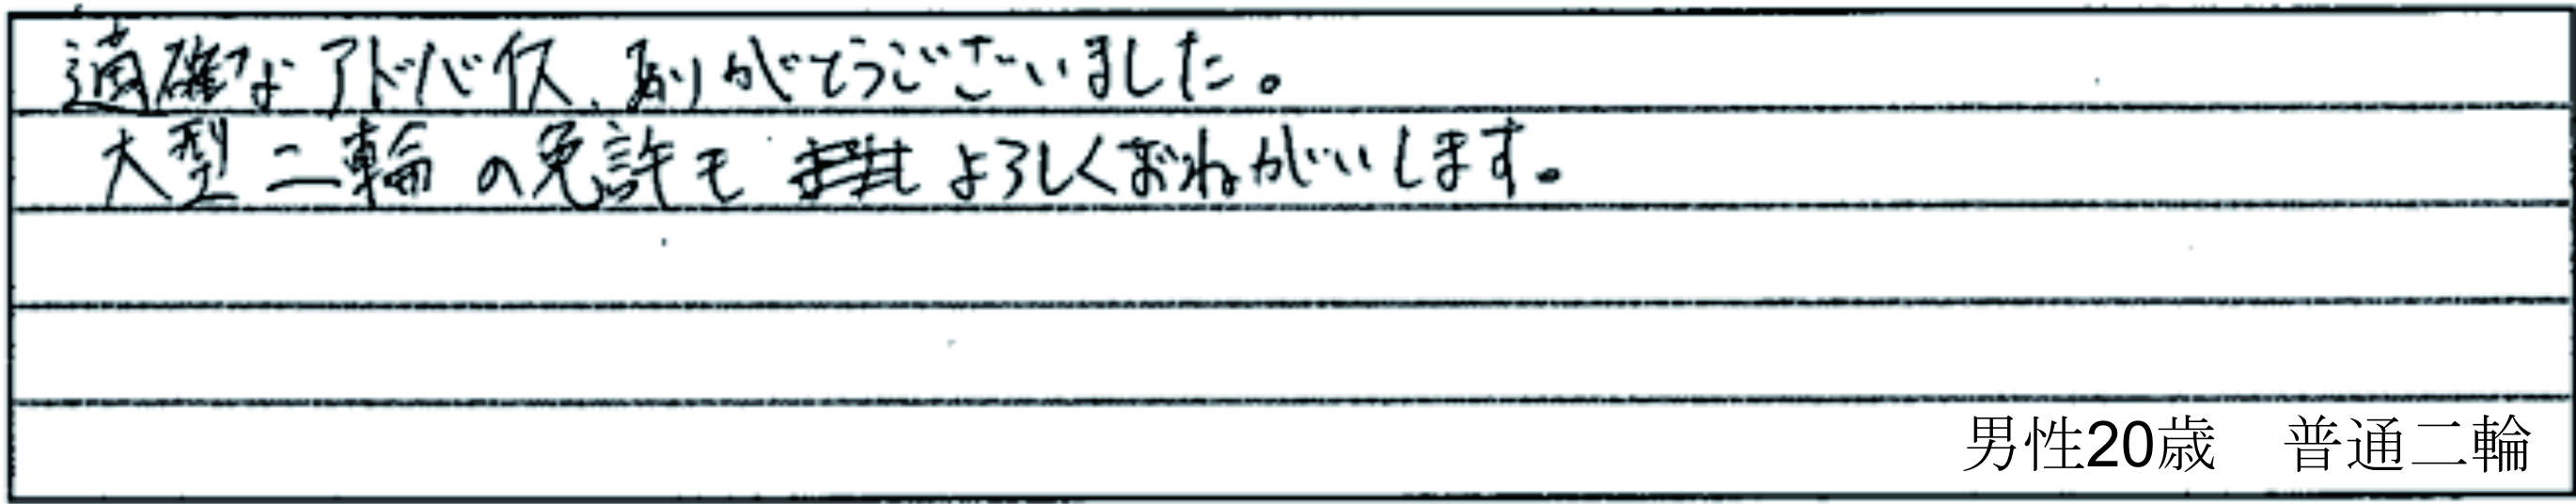 適確なアドバイス、ありがとうございました。
大型二輪の免許も よろしくおねがいします。
男性20歳　普通二輪